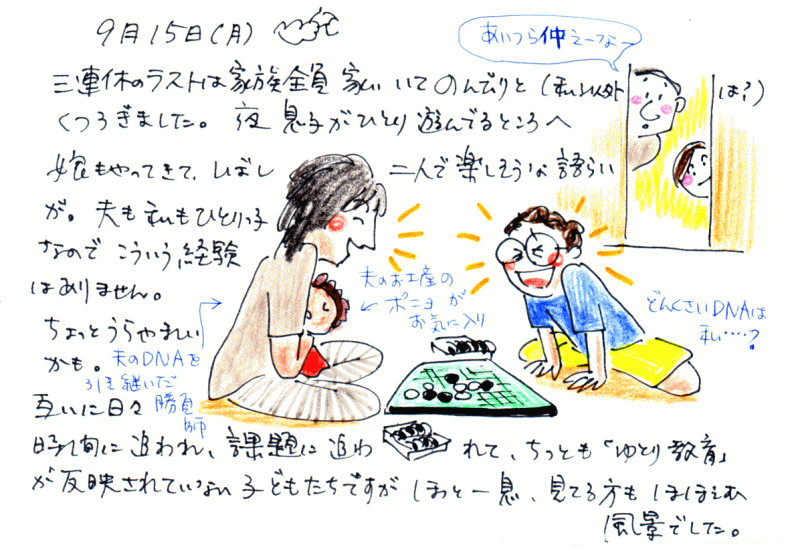 9月15日(月)
あいつら仲えーなー
三連休のラストは家族全員 家に いて のんびりと (私以外は?)
くつろぎました。 夜 息子がひとり遊んでるところへ
娘もやってきて、しばし 二人で楽しそうな語らい
が。 夫も私もひとりっ子
なので こういう経験
はありません。
ちょっとうらやましい
かも。
夫のDNAを
引き継いだ
勝負師
夫のお土産の
← ポニョが
お気に入り
どんくさいDNAは
私‥‥?
互いに日々
時間に追われ、課題に追わ れて、ちっとも「ゆとり教育」
が反映されていない子どもたちですが ほっと一息、見てる方もほほえむ
風景でした。